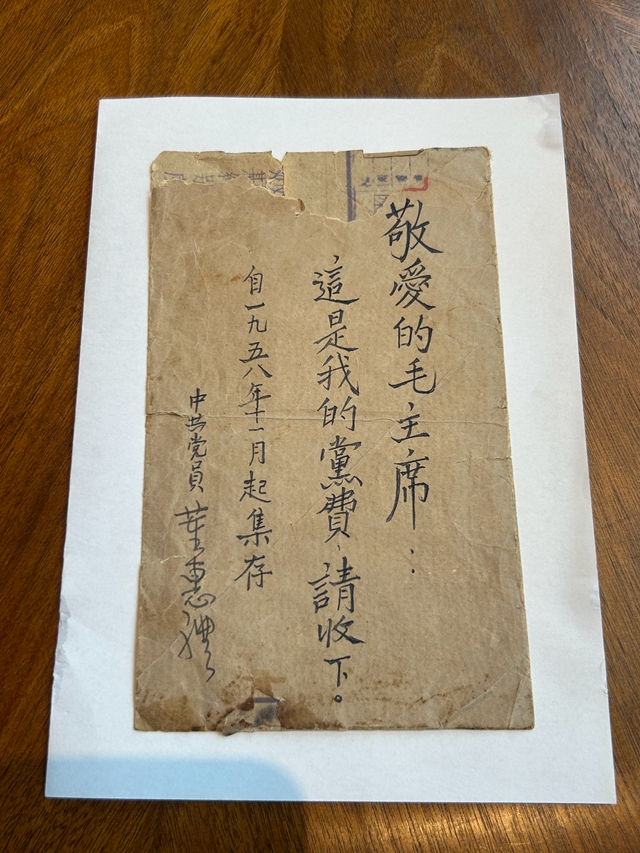 敬愛的毛主席：
這是我的黨費，請收下。
自一九五八年十一月起集存
中共党員 董惠禮